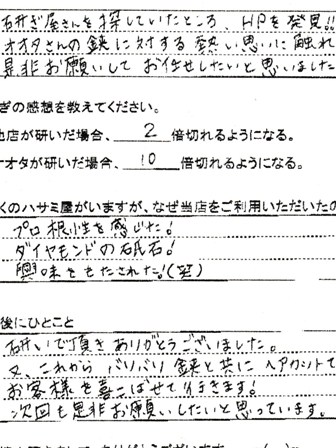 研ぎ屋さんを探していたところ、HPを発見!!
オオタさんの鋏に対する熱い思いに触れ
是非お願いして お任せしたいと思いました
ぎの感想を教えてください。
他店が研いだ場合、 2 倍切れるようになる。
オオタが研いだ場合、 10 倍切れるようになる。
くのハサミ屋がいますが、なぜ当店をご利用いただいたの
プロ根性を感じた!
ダイヤモンドの砥石!
興味をもたされた!(笑)
後にひとこと
研いで頂き ありがとうございました。
又、これから バリバリ 鋏と共に ヘアカットで
お客様を喜こばせて行きます!
次回も是非お願いしたいと思っています。